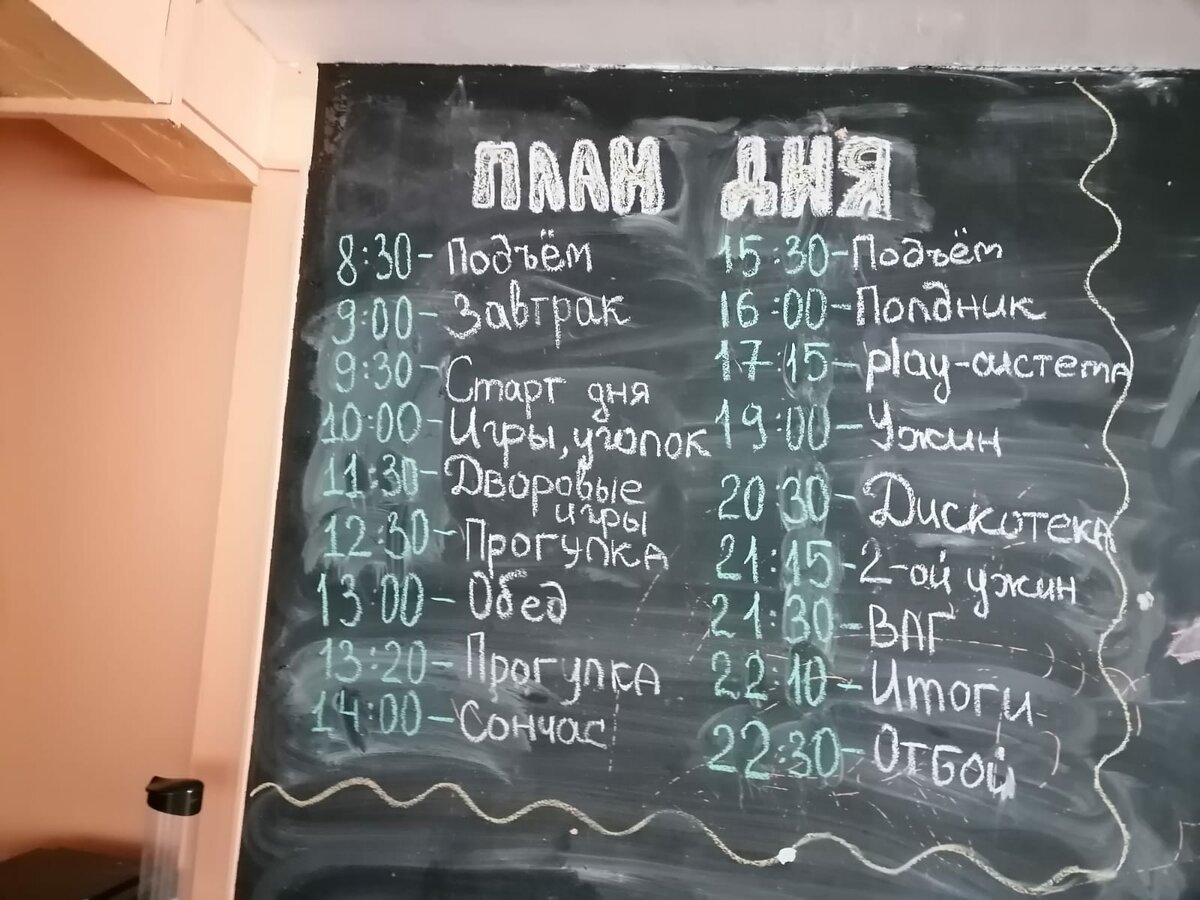 ПЛАН ДНЯ
8:30 - Подъём
9:00 - Завтрак
9:30 - Старт дня
10:00 - Игры, уголок
11:30 - Дворовые
игры
12:30 - Прогулка
13:00 - Обед
13:20 - Прогулка
14:00 - Сончас
15:30 - Подъём
16:00 - Полдник
17:15 - play-система
19:00 - Ужин
20:30 - Дискотека
21:15 - 2-ой ужин
21:30 - ВАГ
22:10 - Итоги
22:30 - Отбой